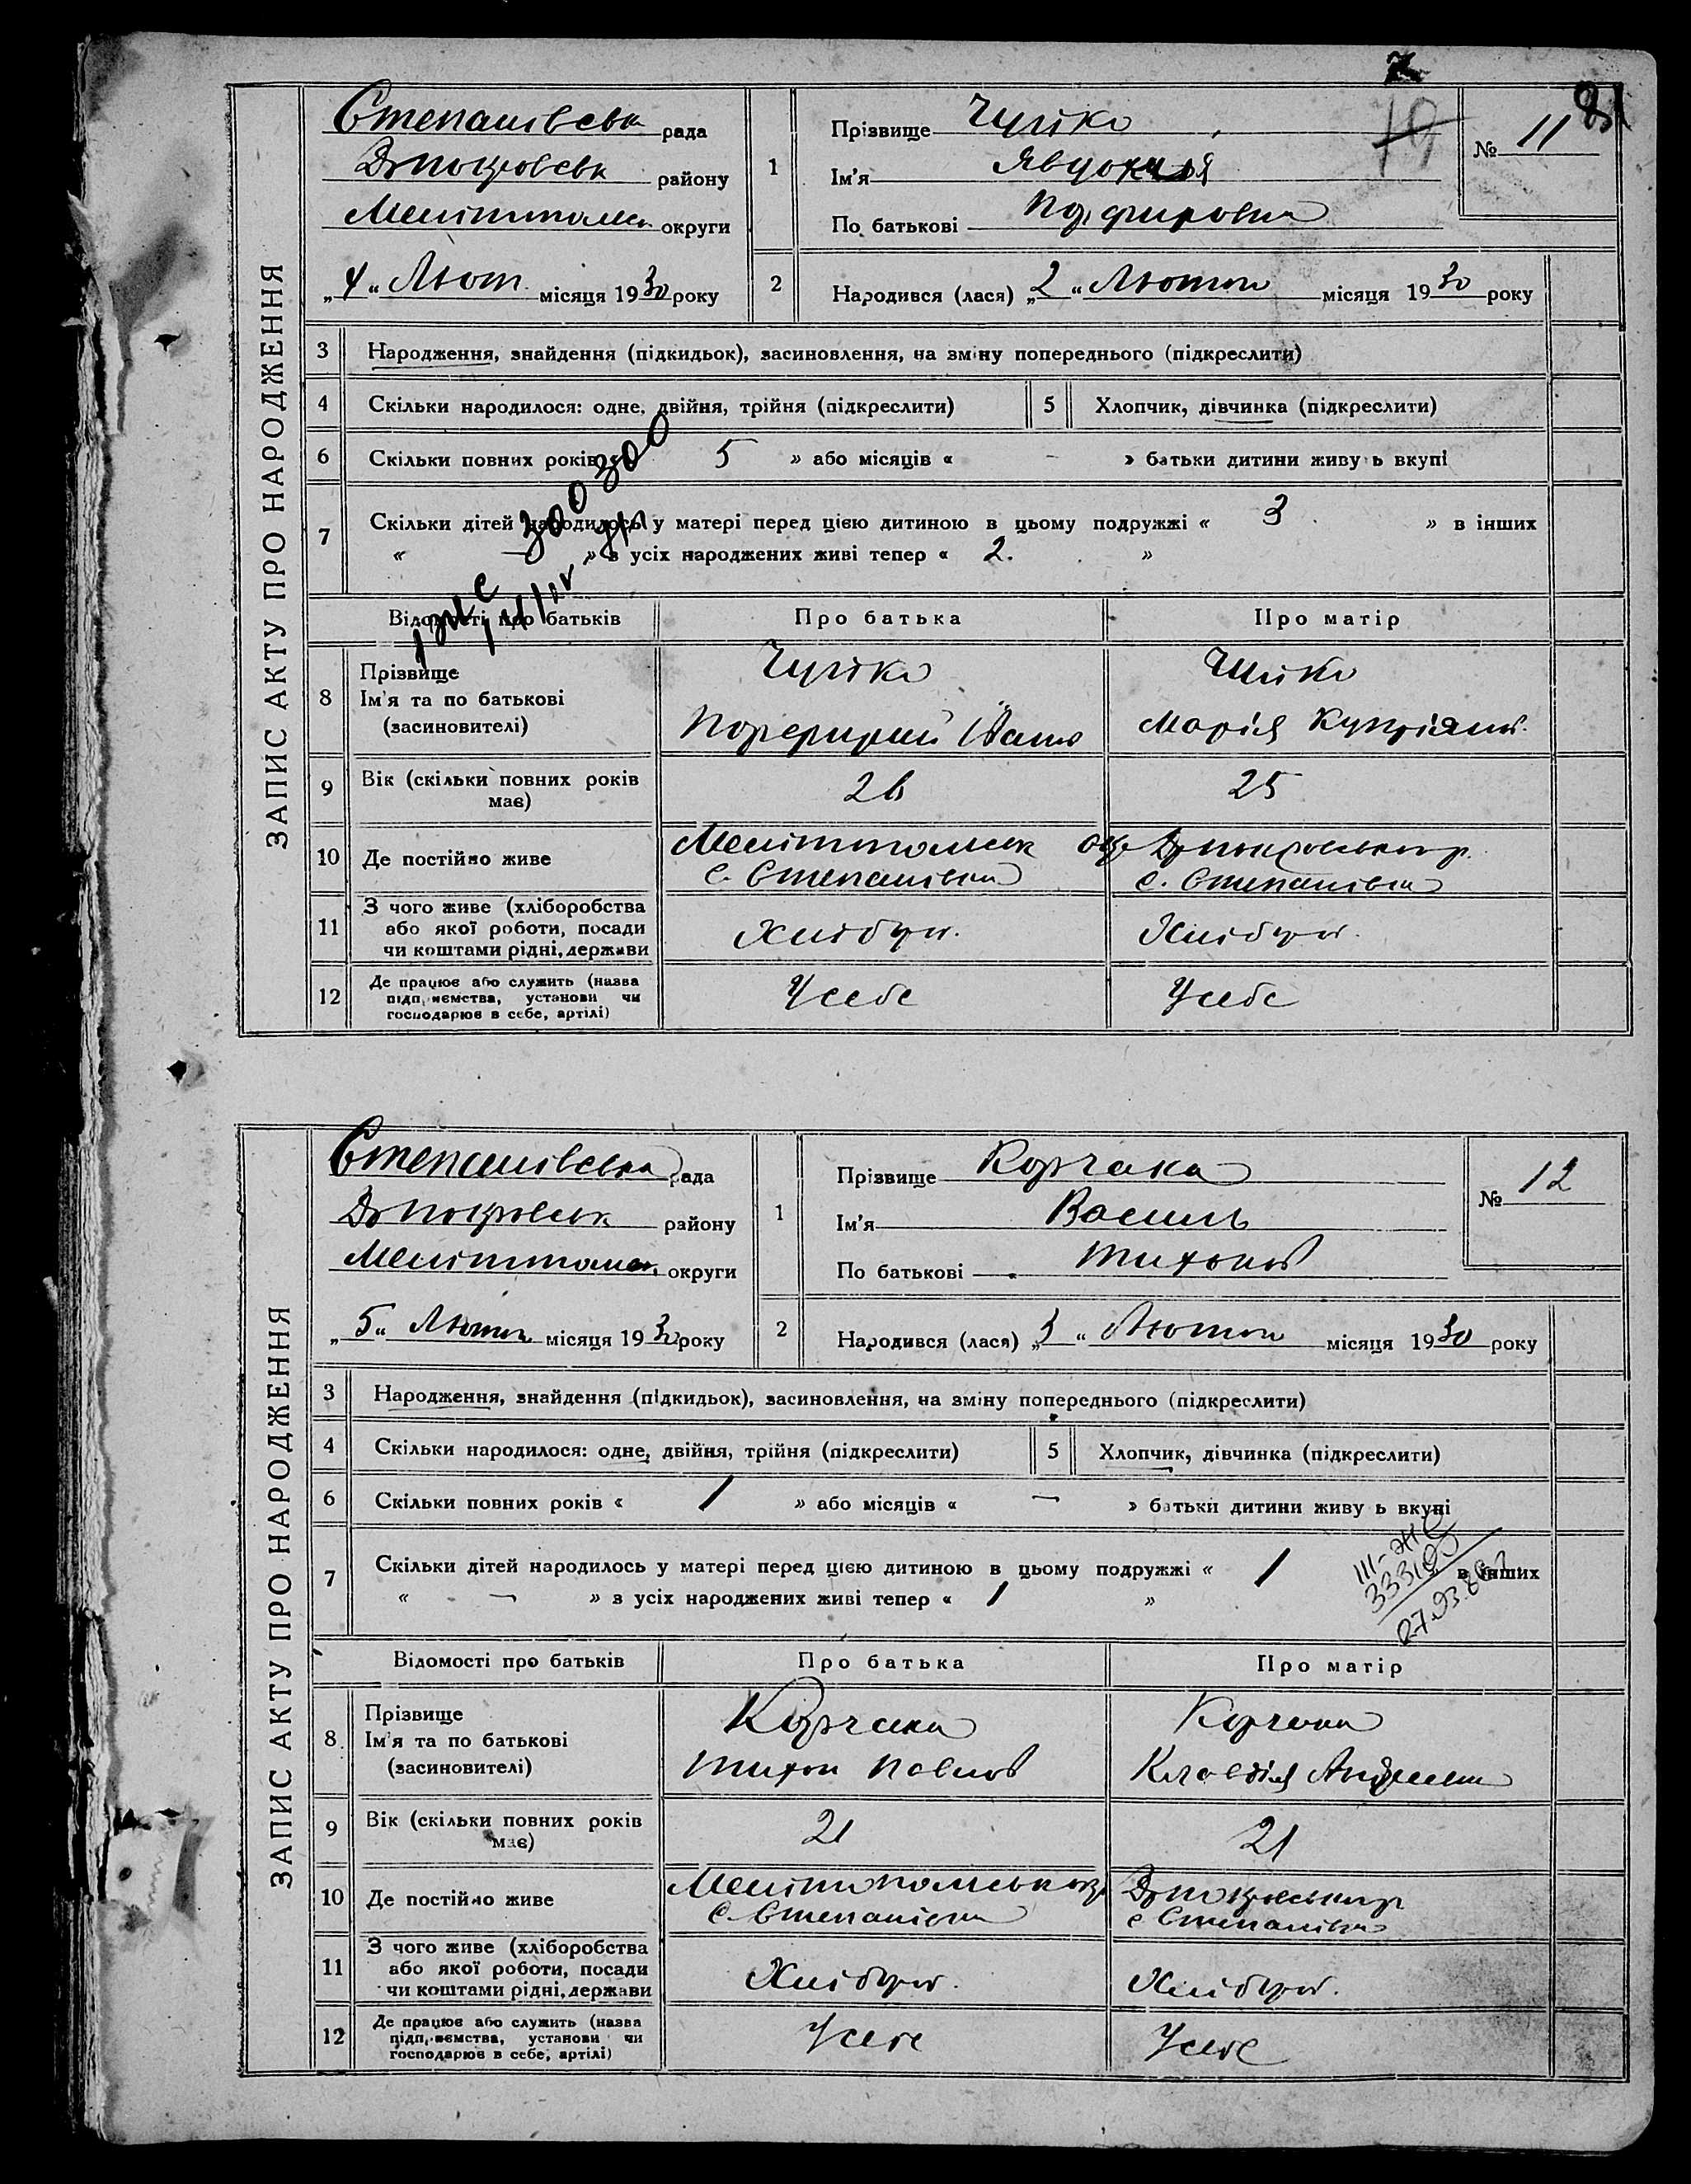 81
79
ЗАПИС АКТУ ПРО НАРОДЖЕННЯ
Степанівська рада
району
Мелітополь округи
„4“ Лют. місяця 1930 року
1
Прізвище Чуйко
Ім'я Явдокия
По батькові Порфировна
№ 11
2
Народився (лася) „2“ Лютого місяця 1930 року
3 Народження, знайдення (підкидьок), засиновлення, на зміну попереднього (підкреслити)
4 Скільки народилося: одне, двійня, трійня (підкреслити) 5 Хлопчик, дівчинка (підкреслити)
6 Скільки повних років « 5 » або місяців « – » батьки дитини живуть вкупі
7 Скільки дітей народилось у матері перед цією дитиною в цьому подружжі « 3 » в інших
« » з усіх народжених живі тепер « 2. »
Відомості про батьків Про батька Про матір
8 Прізвище
Ім'я та по батькові
(засиновителі)
Чуйко
Чуйко
Марія
9 Вік (скільки повних років має) 26 25
10 Де постійно живе
с. Степанівка с. Степанівка
11 З чого живе (хліборобства
або якої роботи, посади
чи коштами рідні, держави
Хлібороб. Хлібороб.
12 Де працює або служить (назва
підприємства, установи чи
господарює в себе, артілі)
У себе У себе
ЗАПИС АКТУ ПРО НАРОДЖЕННЯ
Степанівська рада
району
Мелітополь округи
„5“ Лютого місяця 1930 року
1
Прізвище Корчака
Ім'я Василь
По батькові Тихонов
№ 12
2
Народився (лася) „3“ Лютого місяця 1930 року
3 Народження, знайдення (підкидьок), засиновлення, на зміну попереднього (підкреслити)
4 Скільки народилося: одне, двійня, трійня (підкреслити) 5 Хлопчик, дівчинка (підкреслити)
6 Скільки повних років « 1 » або місяців « – » батьки дитини живуть вкупі
7 Скільки дітей народилось у матері перед цією дитиною в цьому подружжі « 1 » в інших
« – » з усіх народжених живі тепер « 1 »
Відомості про батьків Про батька Про матір
8 Прізвище
Ім'я та по батькові
(засиновителі)
Корчака Корчака
Тихон Павлов Клавдія Андреевна
9 Вік (скільки повних років має) 21 21
10 Де постійно живе
с. Степанівка с. Степанівка
11 З чого живе (хліборобства
або якої роботи, посади
чи коштами рідні, держави
Хлібороб. Хлібороб.
12 Де працює або служить (назва
підприємства, установи чи
господарює в себе, артілі)
У себе У себе